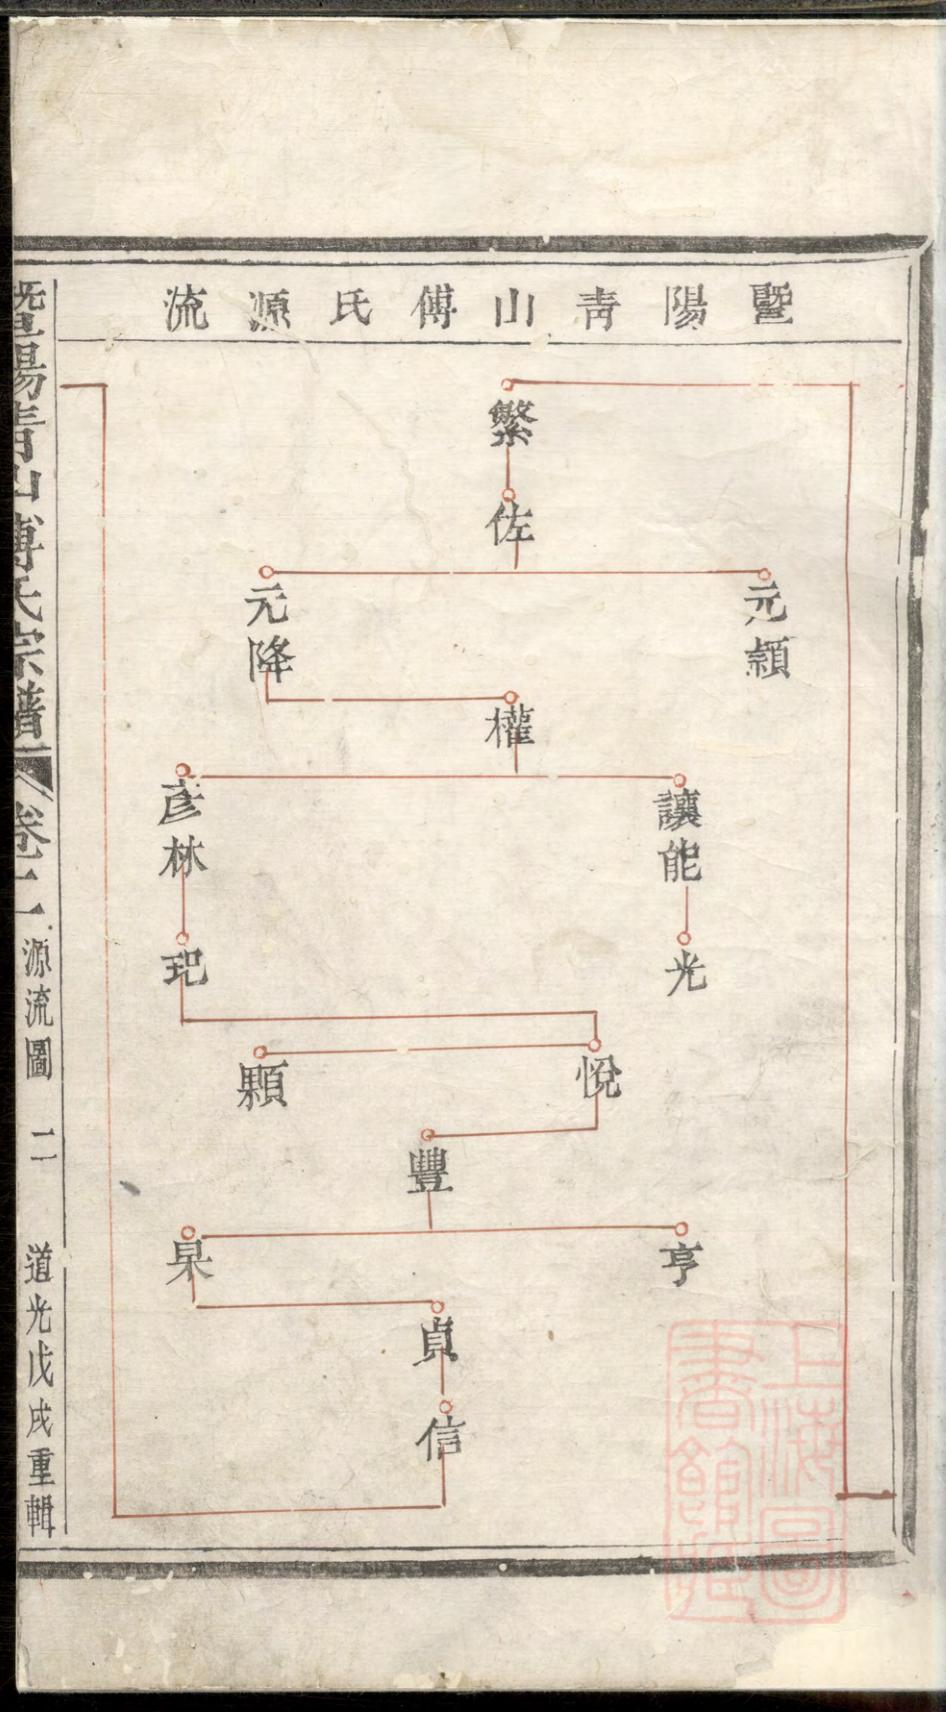 暨陽青山傅氏源流
繁
佐
元穎
元降
權
讓能
彥林
光
玘
悅
顆
豐
亨
杲
貞
信
暨陽青山傅氏宗譜 卷二 源流圖 二 道光戊戌重輯
上海圖書館藏